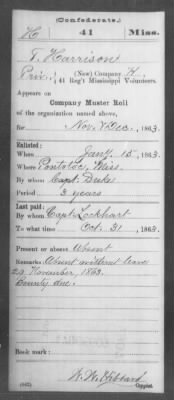 (Confederate.)
H 41 Miss.
T. Harrison
Priv., (New) Company H,
41 Reg't Mississippi Volunteers.
Appears on
Company Muster Roll
of the organization named above,
for Nov. & Dec., 1863.
Enlisted:
When Jany 15, 1863.
Where Pontotoc, Miss.
By whom Capt. Duke
Period 3 years
Last paid:
By whom Capt Lockhart
To what time Oct 31, 1863.
Present or absent Absent
Remarks: Absent without leave
29 November, 1863.
Bounty due.
Book mark:
(642)
Copyist.